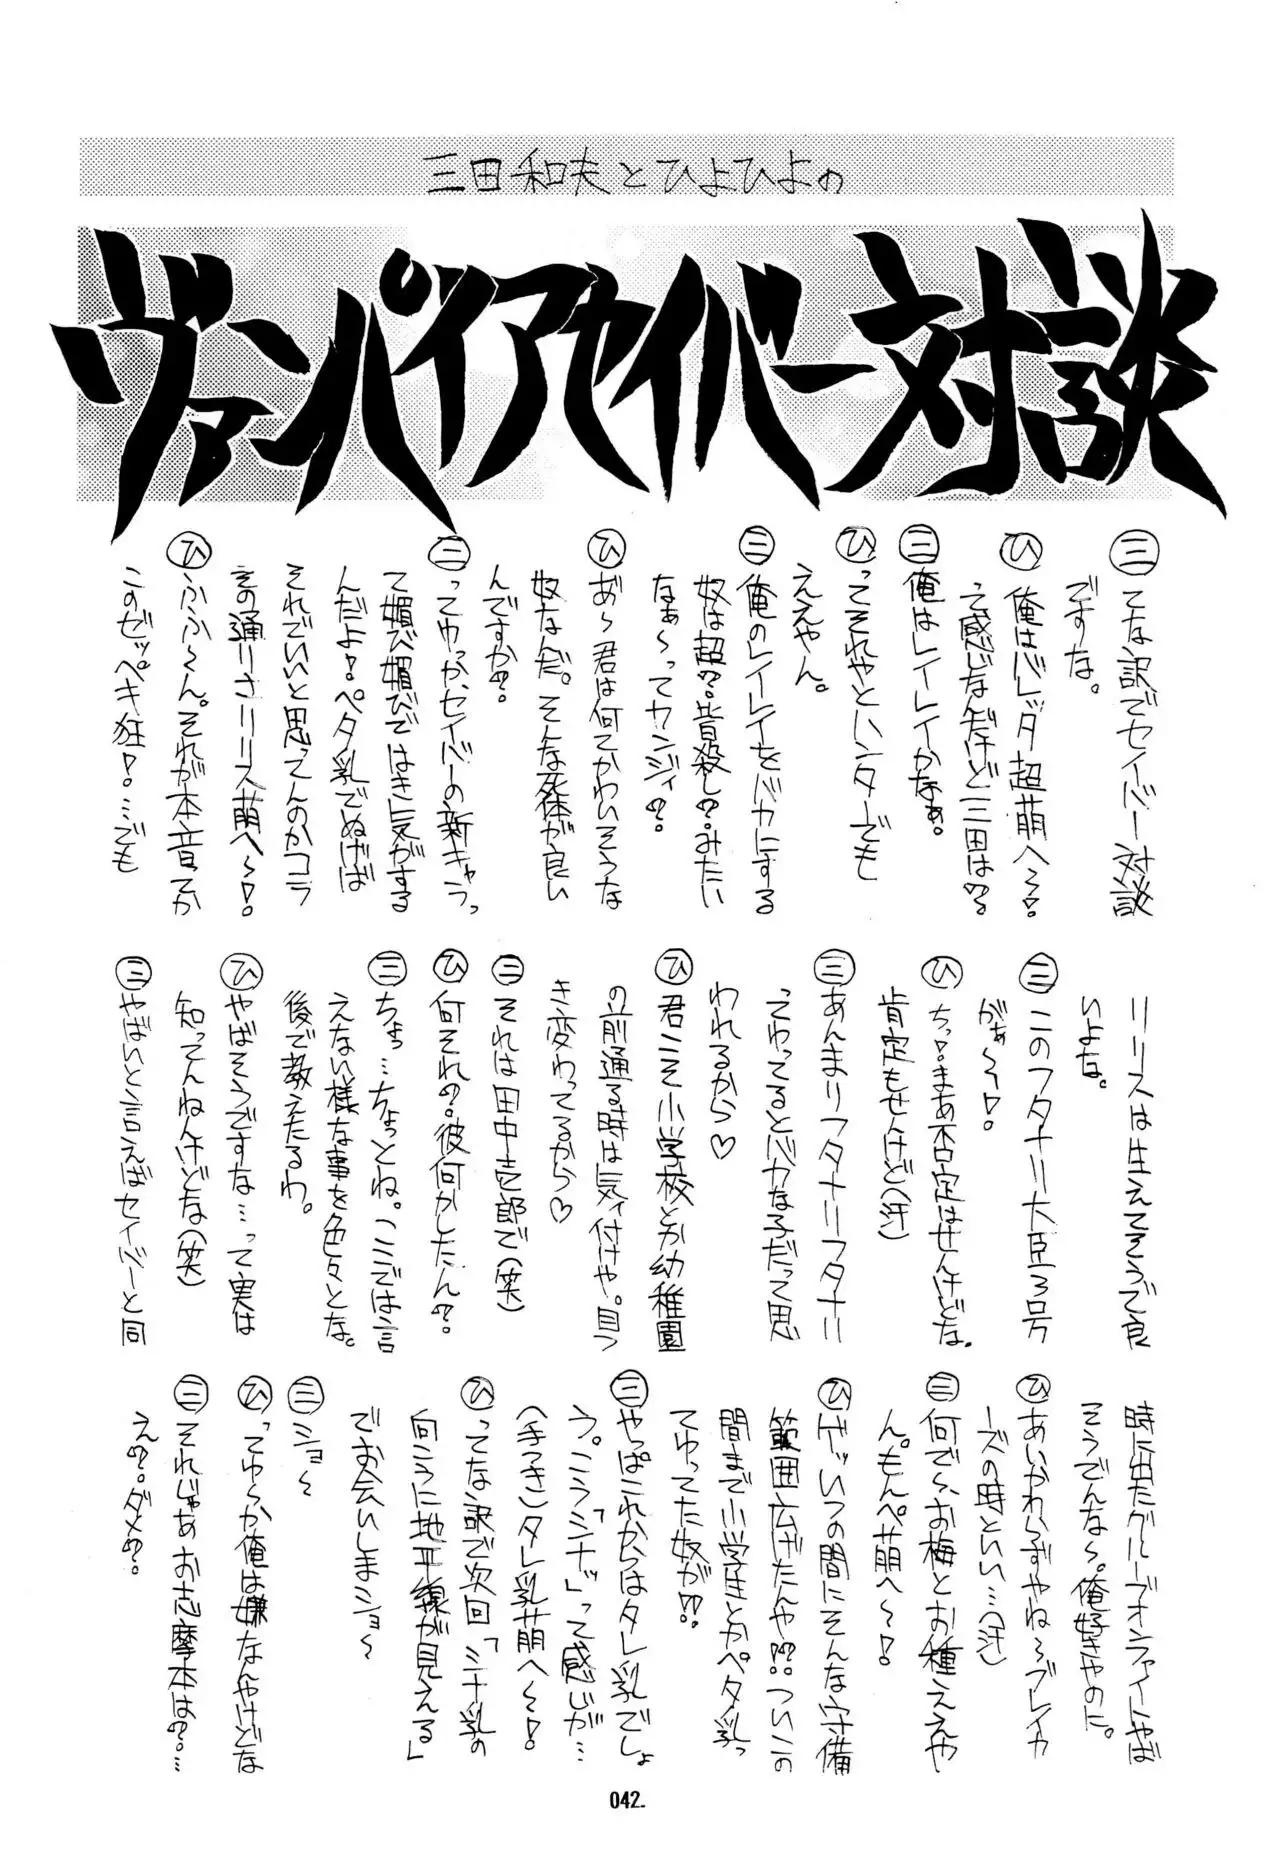 三田和夫とひよひよの
ヴァンパイアセイバー対談
㊂てな訳でセイバー対談
ですな。
㋪俺はバレッタ超萌へ〜!
って感じなんだけど三田は!?
㊂俺はレイレイかなぁ。
㋪ってそれやとハンターでも
ええやん。
㊂俺のレイレイをバカにする
奴は超!?皆殺し!?みたい
なぁ〜ってカンジィ?
㋪あ〜君は何てかわいそうな
奴なんだ。そんな死体が良い
んですか?
㊂ってゆっか、セイバーの新キャラっ
て媚び媚びではき気がする
んだよ!ペタ乳でぬげば
それでいいと思ってんのかコラ
その通りさリリス萌へ〜!
㋪ふふ〜ん。それが本音てか
このゼッペキ狂!…でも
リリスは生えてそうで良
いよな。
㊂このフタナリ大臣3号
がぁ〜!
㋪ちっ!まあ否定はせんけどな。
肯定もせんけど(汗)
㊂あんまりフタナリフタナリ
ってゆってるとバカな子だって思
われるから♡
㋪君こそ小学校とか幼稚園
の前通る時は気ィ付けや。目つ
き変わってるから♡
㊂それは田中壱郎で(笑)
㋪何それ?彼何かしたん?
㊂ちょっ…ちょっとね。ここでは言
えない様な事を色々とな。
後で教えたるわ。
㋪やばそうですな…って実は
知ってんねんけどな(笑)
㊂やばいと言えばセイバーと同
時に出たグルーブオンファイトやば
そうでんな〜。俺好きやのに。
㋪あいかわらずやね〜ブレイカ
ーズの時といい…(汗)
㊂何で〜、お梅とお種ええや
ん。もんぺ萌へ〜!
㋪ゲッいつの間にそんな守備
範囲広げたんや!?ついこの
間まで小学生とかペタ乳っ
てゆってた奴が!?
㊂やっぱこれからはタレ乳でしょ
う。こう「ミナッ」って感じが…
(手つき)タレ乳萌へ〜!
㋪ってな訳で次回「ミナ乳の
向こうに地平線が見える」
でお会いしまショ〜
㊂ショ〜
㋪ってゆ〜か俺は嫌なんやけどな
㊂それじゃあお志摩本は?…
え!?ダメ!?
042.